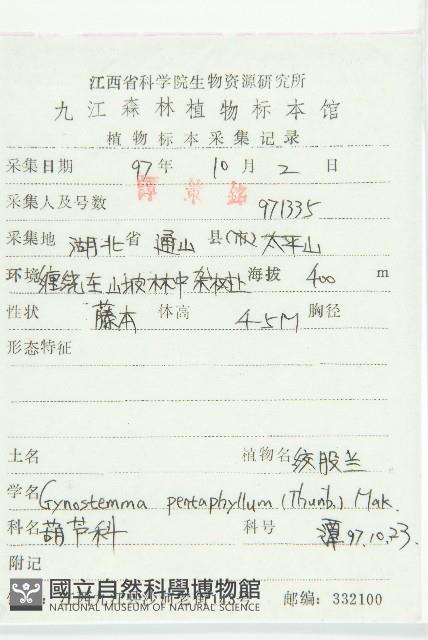 江西省科学院生物资源研究所
九江森林植物标本馆
植物标本采集记录
采集日期 97年 10月 2 日
采集人及号数 971335
采集地 湖北省 通山 县(市) 太平山
环境 缠绕在山坡林中 海拔 400 m
性状 藤本 体高 4-5M 胸径
形态特征
土名 植物名 绞股兰
学名 Gynostemma pentaphyllum (Thunb.) Mak.
科名 葫芦科 科号 潭 97.10.23.
附记
國立自然科學博物館
NATIONAL MUSEUM OF NATURAL SCIENCE
邮编: 332100